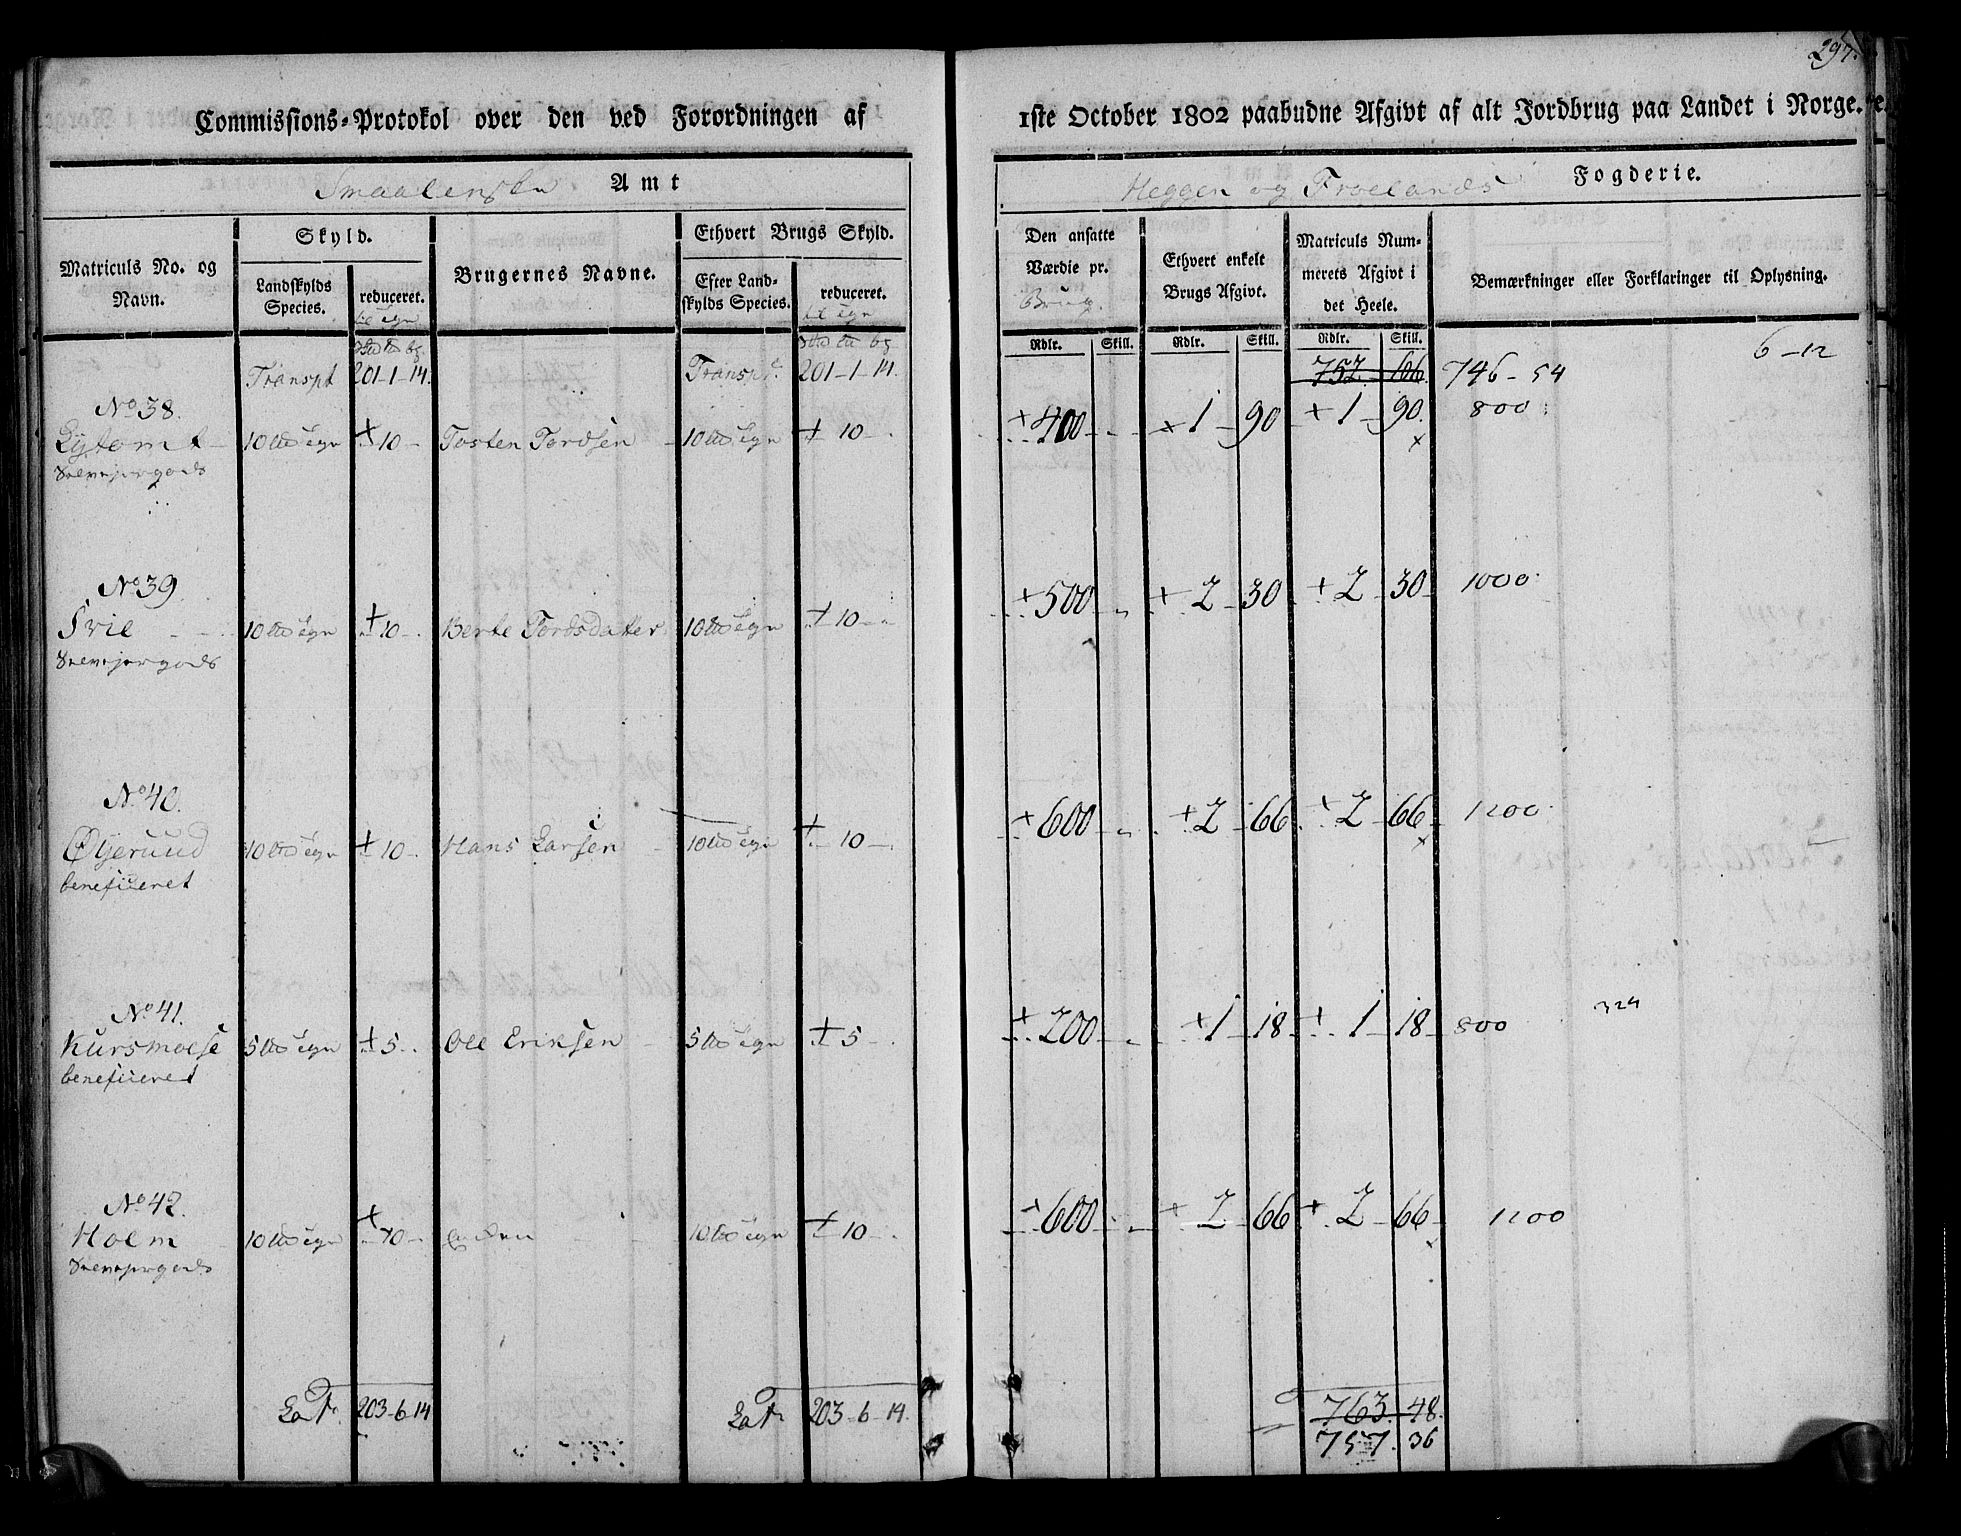 297.
Commissions-Protokol over den ved Forordningen af 1ste October 1802 paabudne Afgivt af alt Jordbrug paa Landet i Norge.
Smaalensene Amt
Heggen og Froelands Fogderie.
Matriculs No. og Navn.
Skyld.
Landskylds Species.
reduceret.
Brugernes Navne.
Ethvert Brugs Skyld.
Efter Landskylds Species.
reduceret.
Den ansatte Værdie pr. Brug.
Ethvert enkelt Brugs Afgivt.
Matriculs Nummerets Afgivt i det Heele.
Bemærkninger eller Forklaringer til Oplysning.
Rdlr. Skill. Rdlr. Skill. Rdlr. Skill.
6-12
Transpt 201-1-14. Transpt. 201-1-14. 752-66. 746-54
No 38.
10 10 Tosten Tordsen 10 10 400 1-90 1-90. 800
No 39
10 10 Berte Tordsdater 10 10 500 2-30 2-30 1000
No 40.
Øÿeruud 10 10 Hans Larsen 10 10 600 2-66 2-66 1200
beneficeret
No 41.
Kursmoese 5 5 Ole Eriksen 5 5 200 1-18 1-18 800 324
beneficeret
No 42.
Holm 10 10 10 10 600 2-66 2-66 1200
Lat. 203-6-14 Lat. 203-6-14. 763.-48.
757. 36